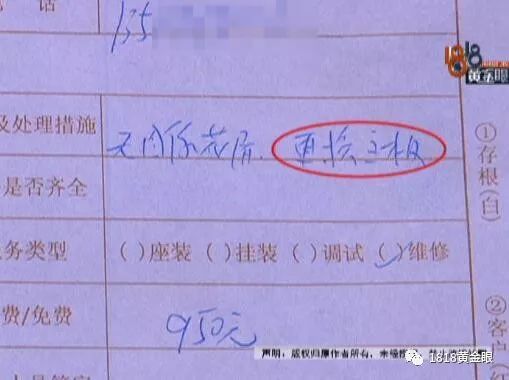 话
135
1818
黄金眼
及处理措施
无图像花屏、更换主板
是否齐全
务类型
( )座装 ( )挂装 ( )调试 (✓)维修
费/免费
950元
①存根(白)
②客户(红
声明:版权归原作者所有,未经授
1818黄金眼